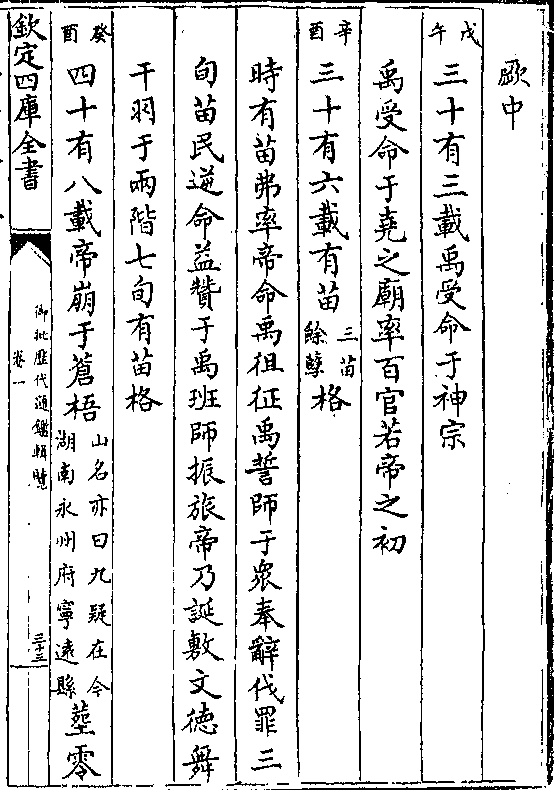 厥中
戊午
三十有三載禹受命于神宗
禹受命于堯之廟率百官若帝之初
辛酉
三十有六載有苗三苗餘孽格
時有苗弗率帝命禹徂征禹誓師于眾奉辭伐罪三
旬苗民逆命益贊于禹班師振旅帝乃誕敷文德舞
干羽于兩階七旬有苗格
癸酉
四十有八載帝崩于蒼梧山名亦曰九疑在今湖南永州府寧遠縣塟零
欽定四庫全書
御批歷代通鑑輯覽
卷一
三十三